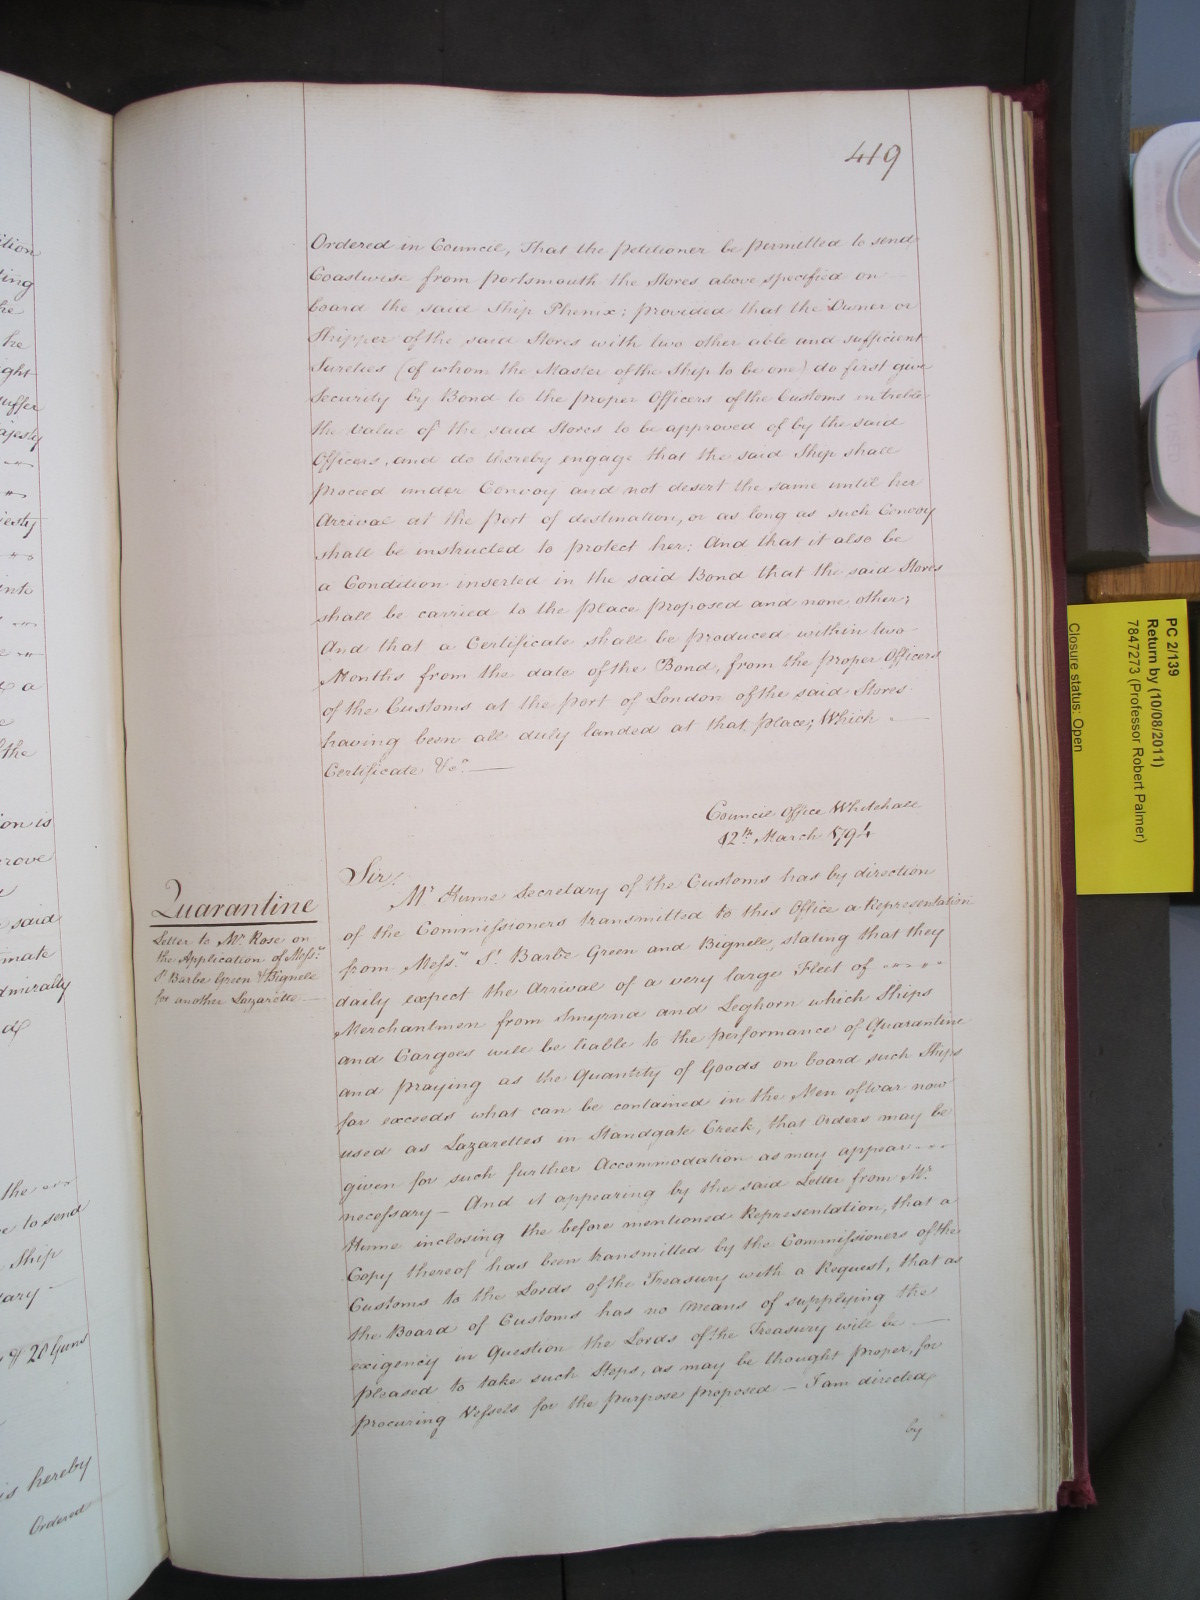 419
Ordered in Council, That the petitioner be permitted to send
Coastwise from portsmouth the Stores above specified on
board the said Ship Phenix; provided that the Owner or
Shipper of the said Stores with two other able and sufficient
Sureties (of whom the Master of the Ship to be one) do first give
Security by Bond to the proper Officers of the Customs in treble
the value of the said Stores to be approved of by the said
Officers, and do thereby engage that the said Ship shall
proceed under Convoy and not desert the same until her
Arrival at the port of destination, or as long as such Convoy
shall be instructed to protect her; And that it also be
a Condition inserted in the said Bond that the said Stores
shall be carried to the place proposed and none other;
And that a Certificate shall be produced within two
Months from the date of the Bond, from the proper Officers
of the Customs at the port of London of the said Stores
having been all duly landed at that place; Which
Certificate &c.
Council Office Whitehall
12th March 1794
Sir/
Quarantine
Letter to Mr Rose on
the Application of Messrs
St Barbe Green & Bignell
for another Lazarette
Mr Hume Secretary of the Customs has by direction
of the Commissioners transmitted to this Office a Representation
from Messrs St Barbe Green and Bignell, stating that they
daily expect the Arrival of a very large Fleet of
Merchantmen from Smyrna and Leghorn which Ships
and Cargoes will be liable to the performance of Quarantine
and praying as the Quantity of Goods on board such Ships
far exceeds what can be contained in the Men of War now
used as Lazarettes in Standgate Creek, that Orders may be
given for such further Accommodation as may appear
necessary – And it appearing by the said Letter from Mr
Hume inclosing the before mentioned Representation, that a
Copy thereof has been transmitted by the Commissioners of the
Customs to the Lords of the Treasury with a Request, that as
the Board of Customs has no Means of supplying the
exigency in Question the Lords of the Treasury will be
pleased to take such Steps, as may be thought proper, for
procuring Vessels for the purpose proposed – I am directed
by
PC 2/139
Return by (10/08/2011)
7847273 (Professor Robert Palmer)
Closure status: Open
he
suffer
said
Admiralty
the
to send
Ship
20 Guns
is hereby
Ordered